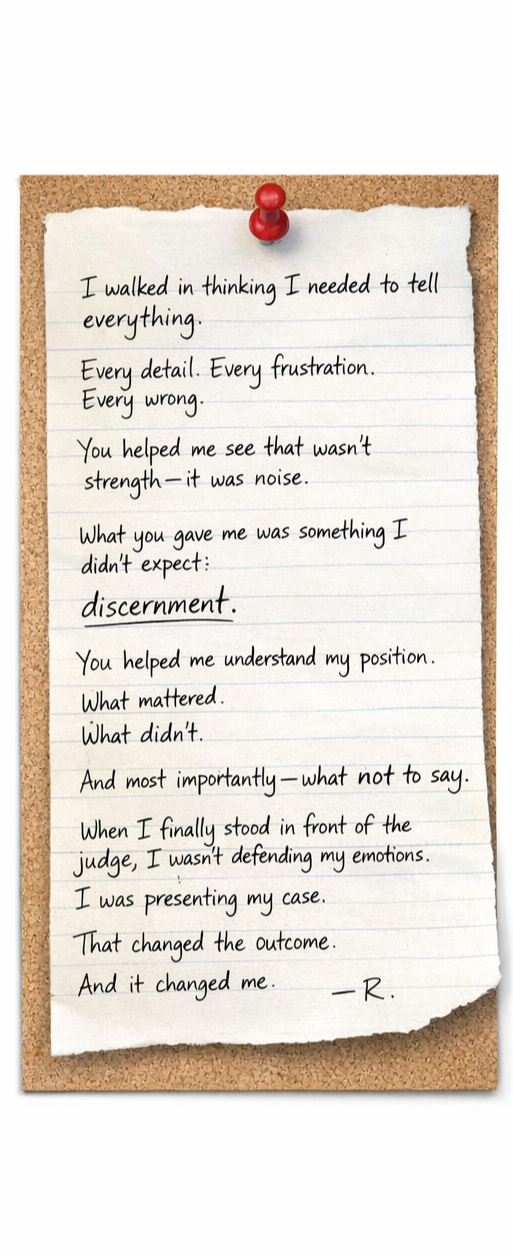 I walked in thinking I needed to tell
everything.
Every detail. Every frustration.
Every wrong.
You helped me see that wasn't
strength—it was noise.
What you gave me was something I
didn't expect:
discernment.
You helped me understand my position.
What mattered.
What didn't.
And most importantly—what not to say.
When I finally stood in front of the
judge, I wasn't defending my emotions.
I was presenting my case.
That changed the outcome.
And it changed me.
—R.